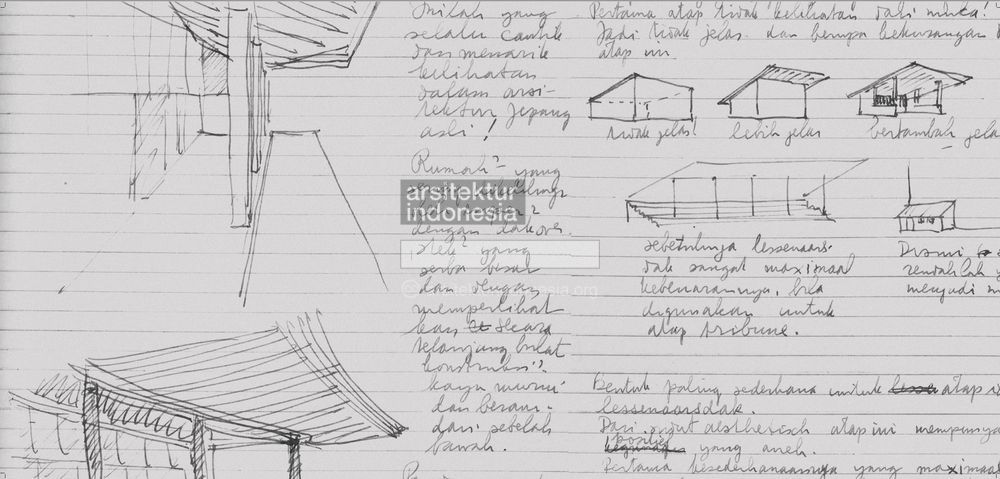 Inilah yang
selalu cantik
dan menarik
kelihatan
dalam arsi-
tektur Jepang
asli!
Rumah² yang
dengan dakover-
stek² yang
serba besar
dan dengan
memperlihat
kan secara
telanjang bulat
konstruksi²
kayu murni
dan berani-
dari sebelah
bawah.
Pertama atap tidak kelihatan dari muka!
Jadi tidak jelas. dan berupa kekurangan
atap ini
tidak jelas!
lebih jelas
bertambah jela
sebetulnja lessenaars-
dak sangat maximaal
kebenarannya, bila
digunakan untuk
atap tribune.
Disini
rendahlah
menjadi
Bentuk paling sederhana untuk atap
lessenaarsdak.
Dari sudut aesthetisch atap ini mempunya
posisi yang aneh.
Pertama kesederhanaannya yang maximaa
arsitektur
indonesia